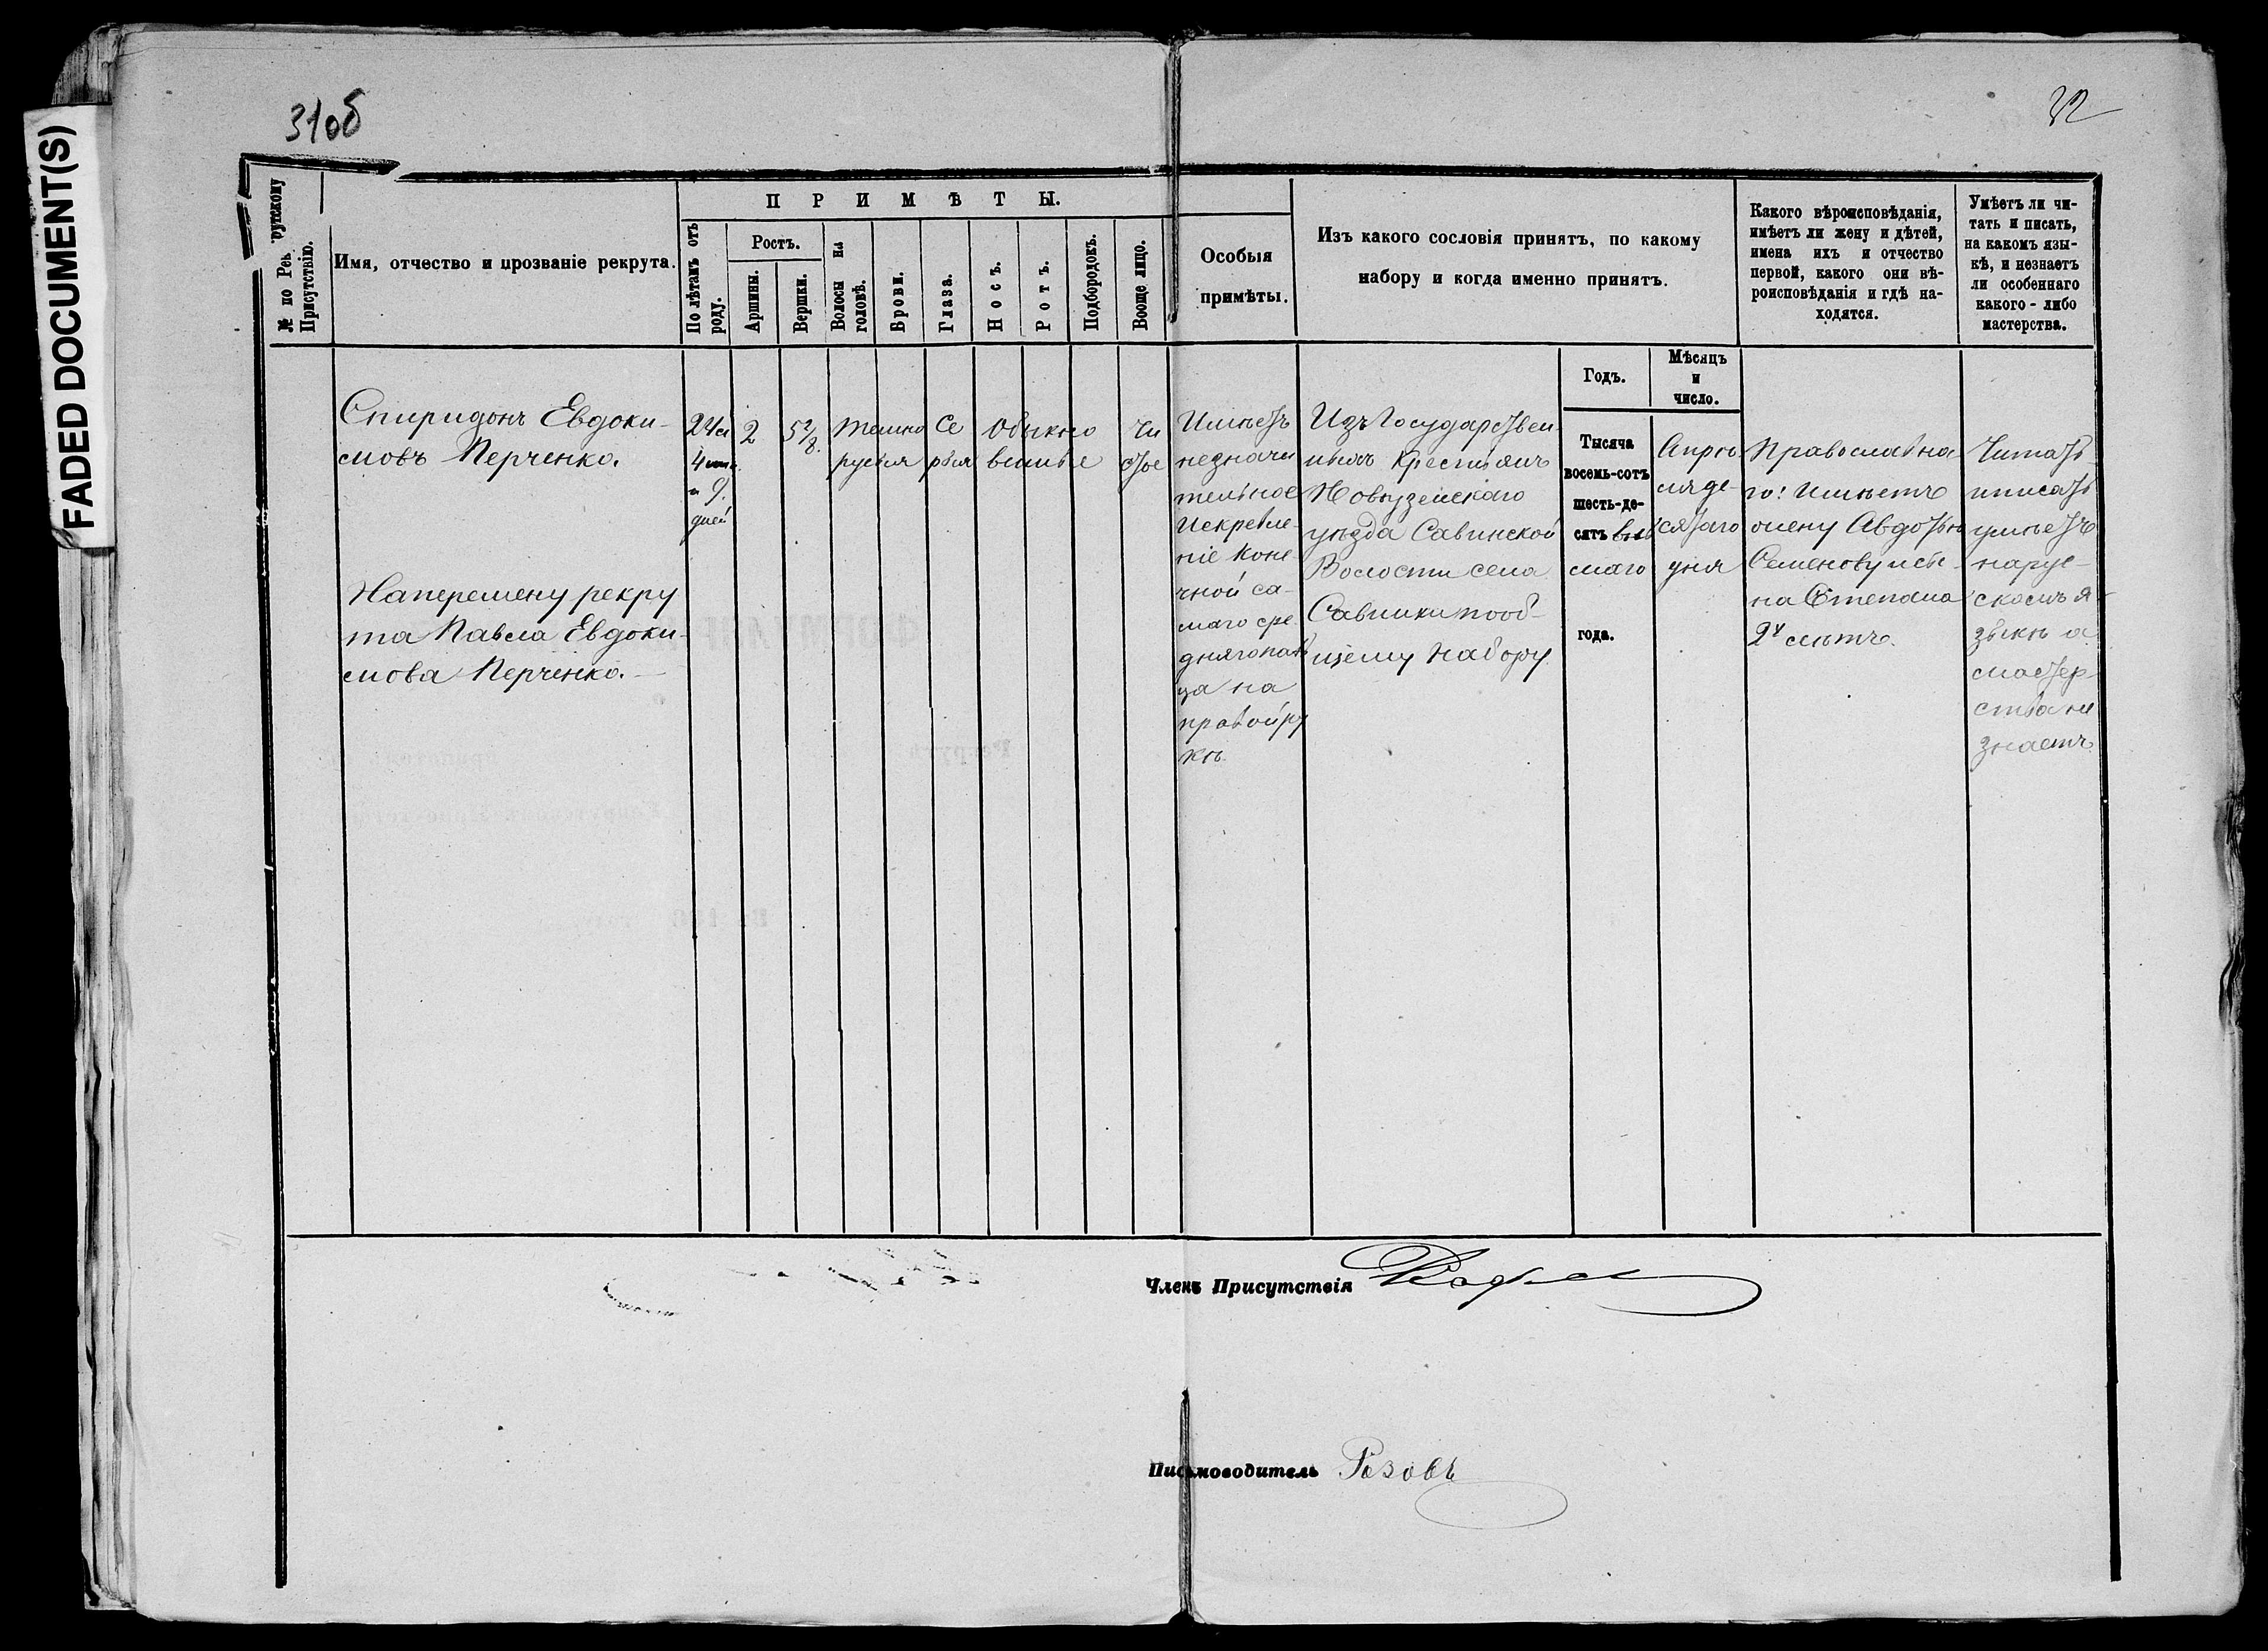 FADED DOCUMENT(S)
31об
32
№ по Рекрутскому
Присутствію.
Имя, отчество и прозваніе рекрута.
ПРИМѢТЫ.
По лѣтамъ отъ
роду.
Ростъ.
Аршины.
Вершки.
Волосы на
головѣ.
Брови.
Глаза.
Носъ.
Ротъ.
Подбородокъ.
Вооще лицо.
Особыя
примѣты.
Изъ какого сословія принятъ, по какому
набору и когда именно принятъ.
Какого вѣроисповѣданія,
имѣетъ ли жену и дѣтей,
имена ихъ и отчество
первой, какого они вѣ-
роисповѣданія и гдѣ на-
ходятся.
Умѣетъ ли чи-
тать и писать,
на какомъ язы-
кѣ, и незнаетъ
ли особеннаго
какого-либо
мастерства.
Спиридонъ Евдоки-
мовъ Перченко.
Наперемену рекру
та Павла Евдоки-
мова Перченко.—
4
и 9.
дней
2
5 2/8.
темно
русыя
се
рыя
обыкно
венные
чи
стое
Имѣетъ
незначи
тельное
Искревле-
ніе коне-
чной са-
маго сре
дняго паль
ца на
правой ру
кѣ.
Изъ Государствен-
ныхъ крестьянъ
Новоузенскаго
уѣзда Савинской
Волости села
Савинки по об-
щему набору.
Годъ.
Тысяча
восемь-сотъ
шесть-де-
сятъ вось
маго
года.
Мѣсяцъ
и
число.
Апрѣ-
ля де-
сятаго
дня
Православна
го: имѣетъ
жену Авдотью
Семенову и сы-
на Степана
2х лѣтъ.
Читать
и писать
умѣетъ
на рус-
скомъ я-
зыкѣ а
мастер-
ства не
знаетъ.
Членъ Присутствія
Письмоводитель Розовъ